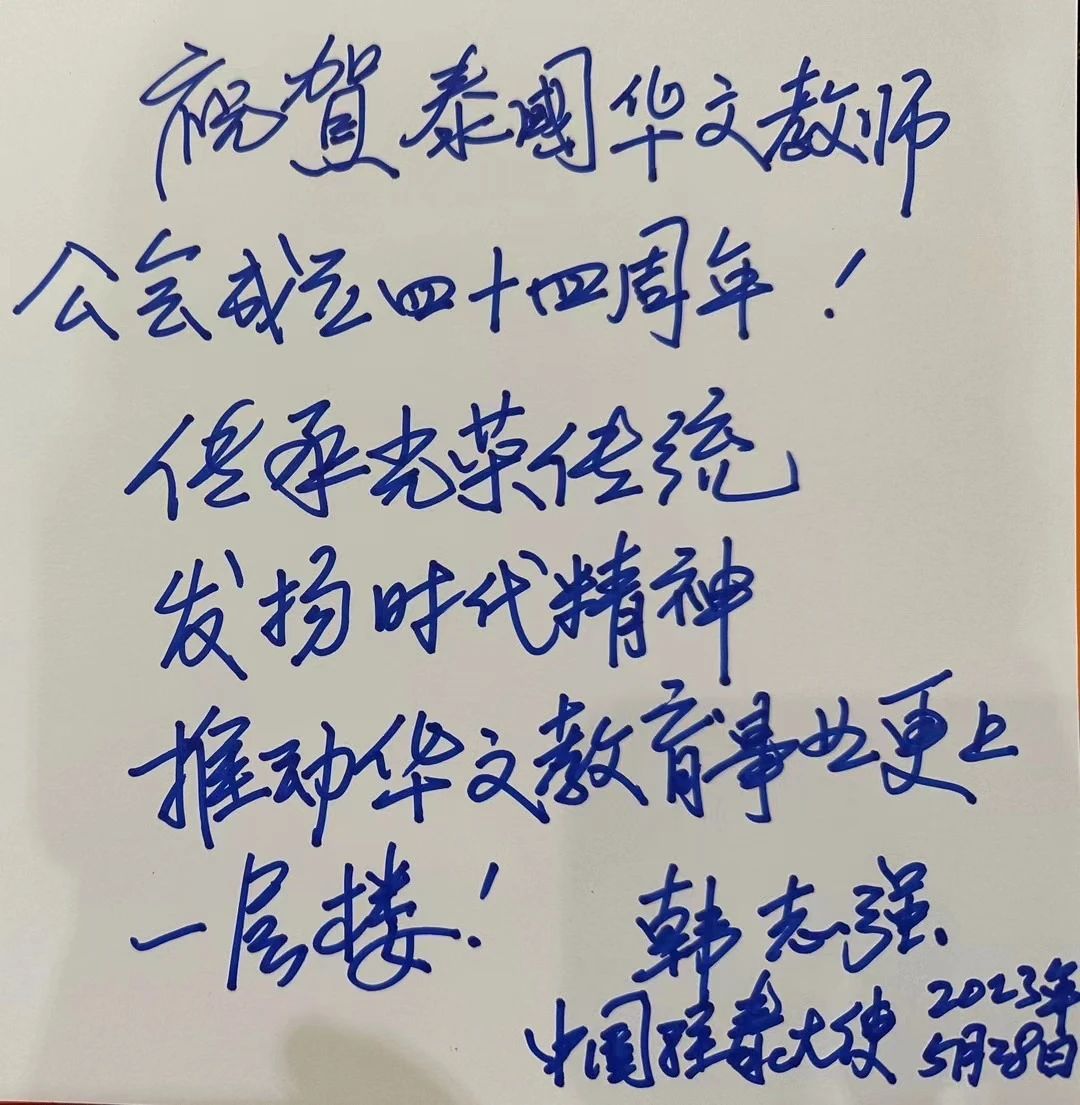 祝賀泰國华文教师
公会成立四十四周年!
传承光荣传统
发扬时代精神
推动华文教育事业更上
一层楼!
韩志强
中国驻泰大使
2023年
5月28日